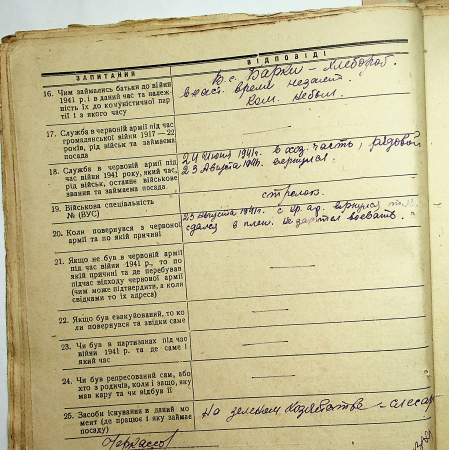 ЗАПИТАННЯ
ВІДПОВІДІ
16. Чим займались батьки до війни
1941 р. і в даний час та належ-
ність їх до комуністичної пар
тії і з якого часу
В с. Барки – хлебороб.
в наст. время независт.
Ком. не был.
17. Служба в червоній армії під час
громадянської війни 1917—22
років, рід військ та займаема
посада
18. Служба в червоній армії під
час війни 1941 року, який час,
рід військ, останне військове
звання та займаема посада
24 Июня 1941г. в хоз. часть, рядовой
23 Августа 1941г. вернулся.
19. Військова спеціальність
№ (ВУС)
стрелок.
20. Коли повернувся з червоної
армії та по якій причині
23 Августа 1941г. с кр. ад. вернулся
сдался в плен. воевать.
21. Якщо не був в червоній армії
під час війни 1941 р., то по
якій причині та де перебував
підчас відходу червоної армії
(чим може підтвердити, а коли
свідками то їх адреса)
22. Якщо був евакуйований, то ко
ли повернувся та звідки саме
23. Чи був в партизанах під час
війни 1941 р. та де саме і
який час
24. Чи був репресований сам, або
хто з родичів, коли і защо, яку
мав кару та чи відбув її
25. Засоби існування в даний мо
мент (де працює і яку займае
посаду)
На зеленом хозяйстве – слесар